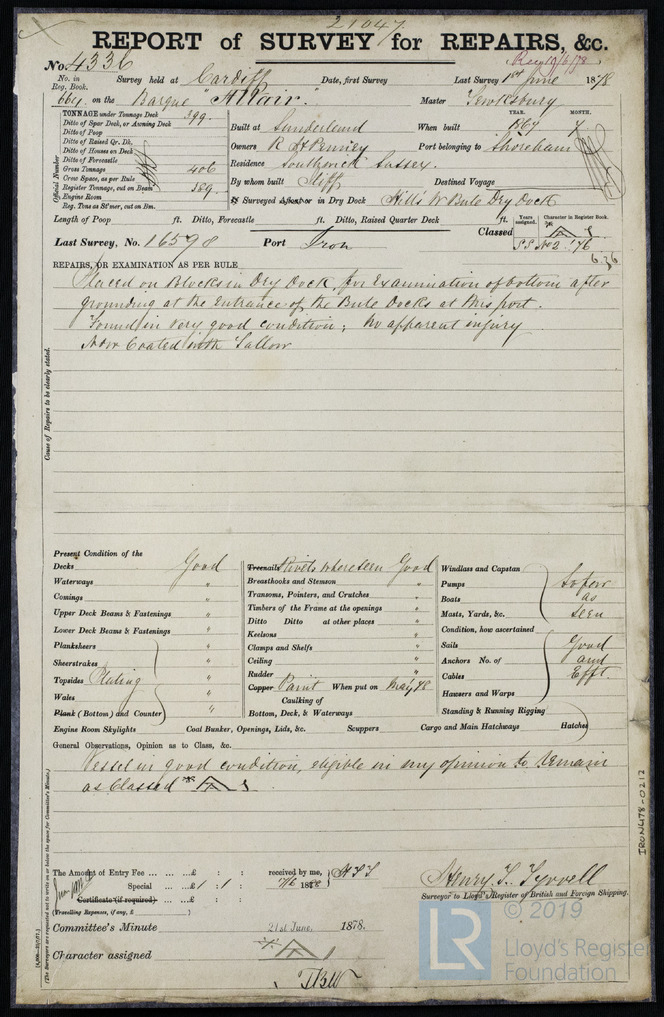 21047
REPORT of SURVEY for REPAIRS, &c.
No. 4336
No. in Reg. Book.
Survey held at Cardiff
Date, first Survey
Last Survey 1st June 1878
664 on the Barque "Altair."
Master Tewkesbury
TONNAGE under Tonnage Deck 399
Ditto of Spar Deck, or Awning Deck
Ditto of Poop
Ditto of Raised Qr. Dk.
Ditto of Houses on Deck
Ditto of Forecastle
Gross Tonnage 406
Crew Space, as per Rule
Register Tonnage, cut on Beam 389
Engine Room
Reg. Tons as St'mer, cut on Bm.
Official Number
YEAR. MONTH.
Built at Sunderland
When built 1867 7
Owners R H Penney
Port belonging to Shoreham
Residence Southwick Sussex.
By whom built Iliff
Destined Voyage
Surveyed Afloat or in Dry Dock Hills W Bute Dry Dock
Length of Poop ft. Ditto, Forecastle ft. Ditto, Raised Quarter Deck ft.
Classed
Years assigned.
Character in Register Book.
SS No 2. '76
6.36
Last Survey, No. 16598 Port Iron
REPAIRS, OR EXAMINATION AS PER RULE
Placed on Blocks in Dry Dock, for Examination of bottom after
grounding at the Entrance of the Bute Docks at this port.
Found in very good condition; no apparent injury
Now Coated with Tallow
Cause of Repairs to be clearly stated.
Present Condition of the
Decks Good
Waterways "
Comings "
Upper Deck Beams & Fastenings "
Lower Deck Beams & Fastenings "
Planksheers "
Sheerstrakes "
Topsides Plating "
Wales "
Plank (Bottom) and Counter "
Treenails Rivets where seen Good
Breasthooks and Stemson "
Transoms, Pointers, and Crutches "
Timbers of the Frame at the openings "
Ditto Ditto at other places "
Keelsons "
Clamps and Shelfs "
Ceiling "
Rudder "
Copper Paint When put on May 78
Caulking of
Bottom, Deck, & Waterways "
Windlass and Capstan
Pumps
Boats
Masts, Yards, &c.
so far
as
seen
Condition, how ascertained
Sails
Anchors No. of
Cables
Hawsers and Warps
Standing & Running Rigging
Good
and
Efft
Engine Room Skylights Coal Bunker, Openings, Lids, &c. Scuppers Cargo and Main Hatchways Hatches
General Observations, Opinion as to Class, &c.
Vessel in good condition, eligible in my opinion to remain
as Classed
The Amount of Entry Fee ... ... ...£ : :
received by me,
Special ... ...£ 1 : 1 :
17/6 1878
Certificate (if required) ... ...£ : :
(Travelling Expenses, if any, £ )
Henry T. Tyrrell
Surveyor to Lloyd's Register of British and Foreign Shipping.
Committee's Minute 21st June 1878.
Character assigned
(The Surveyors are requested not to write on or below the space for Committee's Minute.)
IRON478-0212
LR
© 2019
Lloyd's Register
Foundation